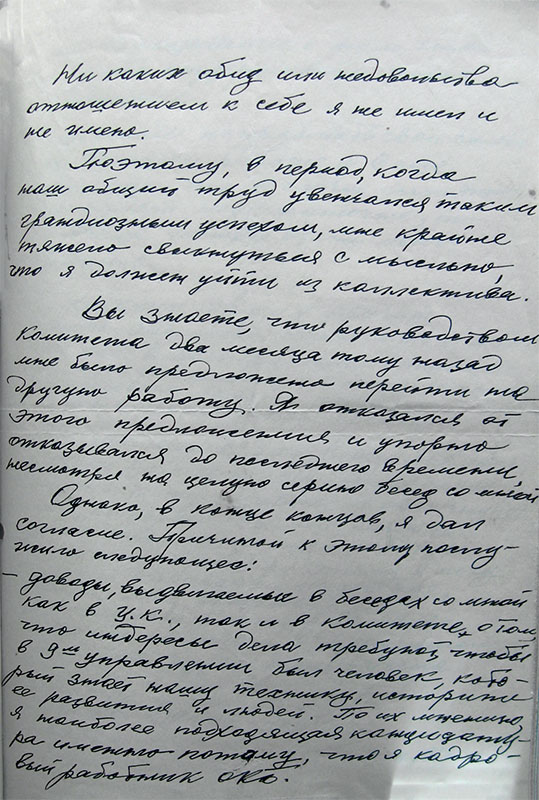 Ни каких обид или недовольства
отношением к себе я не имел и
не имею.
Поэтому, в период, когда
наш общий труд увенчался таким
грандиозным успехом, мне крайне
тяжело свыкнуться с мыслью,
что я должен уйти из коллектива.
Вы знаете, что руководством
комитета два месяца тому назад
мне было предложено перейти на
другую работу. Я отказался от
этого предложения и упорно
отказывался до последнего времени,
несмотря на целую серию бесед со мной
Однако, в конце концов, я дал
согласие. Причиной к этому послу-
жило следующее:
- доводы, выдвигаемые в беседах со мной
как в Ц.К., так и в Комитете, о том,
что интересы дела требуют, чтобы
в 9ом управлении был человек, кото-
рый знает нашу технику, историю
ее развития и людей. По их мнению,
я наиболее подходящая кандидату-
ра именно потому, что я кадро-
вый работник ОКБ.